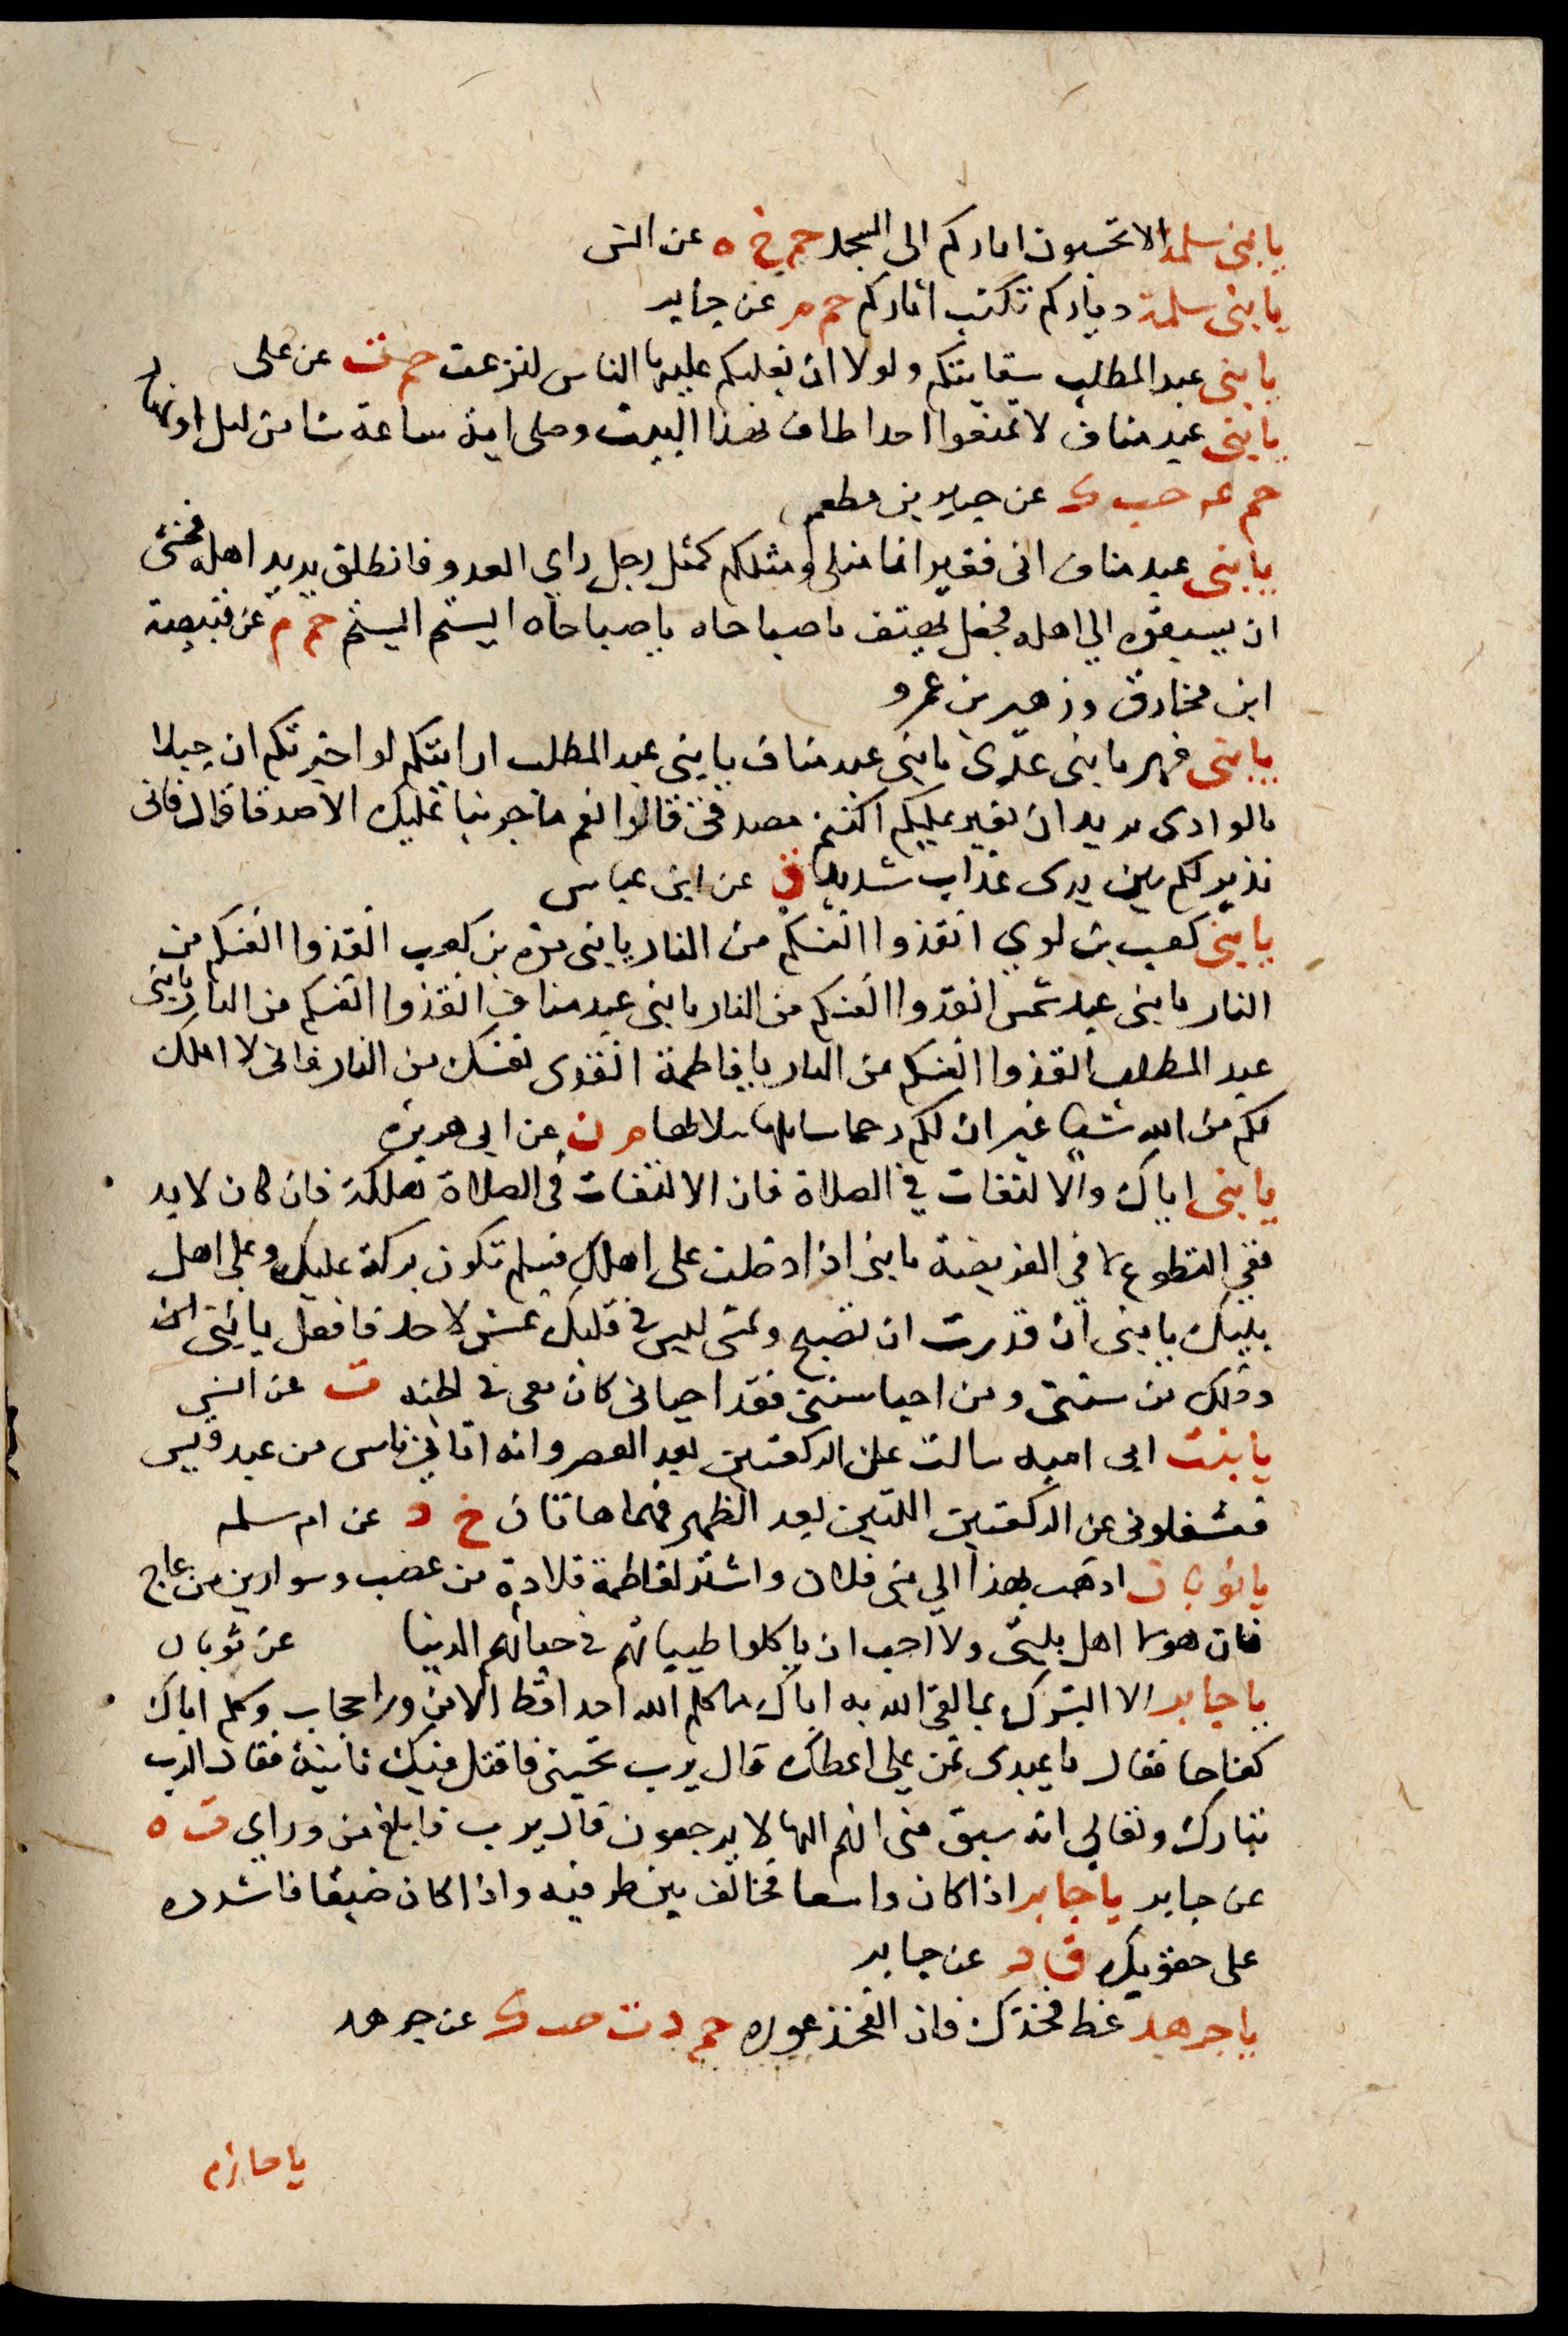 يا بنى سلمة الا تحتسبون اثاركم الى المسجد حم خ ه عن انس
يا بنى سلمة دياركم تكتب اثاركم حم م عن جابر
يا بنى عبد المطلب سقايتكم ولولا ان يغلبكم عليها الناس لنزعت حم ت عن على
يا بنى عبد مناف لا تمنعوا احدا طاف بهذا البيت وصلى اية ساعة شا من ليل او نهار
حم عه حب ك عن جبير بن مطعم
يا بنى عبد مناف انى نذير انما مثلى ومثلكم كمثل رجل راى العدو فانطلق يريد اهله فخشى
ان يسبقوه الى اهله فجعل يهتف يا صباحاه يا صباحاه اتيتم اتيتم حم م عن قبيصة
ابن مخارق وزهير بن عمرو
يا بنى فهر يا بنى عدى يا بنى عبد مناف يا بنى عبد المطلب ارايتكم لو اخبرتكم ان خيلا
بالوادى تريد ان تغير عليكم اكنتم مصدقى قالوا نعم ما جربنا عليك الا صدقا قال فانى
نذير لكم بين يدى عذاب شديد ق عن ابن عباس
يا بنى كعب بن لوي انقذوا انفسكم من النار يا بنى مرة بن كعب انقذوا انفسكم من
النار يا بنى عبد شمس انقذوا انفسكم من النار يا بنى عبد مناف انقذوا انفسكم من النار يا بنى
عبد المطلب انقذوا انفسكم من النار يا فاطمة انقذى نفسك من النار فانى لا املك
لكم من الله شيا غير ان لكم رحما سابلها ببلالها م ن عن ابى هريرة
يا بنى اياك والالتفات في الصلاة فان الالتفات في الصلاة هلكة فان كان لا بد
ففي التطوع لا في الفريضة يا بنى اذا دخلت على اهلك فسلم تكون بركة عليك وعلى اهل
بيتك يا بنى ان قدرت ان تصبح وتمسى ليس في قلبك غش لاحد فافعل يا بنى ان
وذلك من سنتى ومن احيا سنتى فقد احيانى كان معى في الجنه ت عن انس
يا بنت ابى اميه سالت عن الركعتين بعد العصر وانه اتانى ناس من عبد قيس
فشغلونى عن الركعتين اللتين بعد الظهر فهما هاتان خ د عن ام سلمه
يا ثوبان اذهب بهذا الي بنى فلان واشتر لفاطمة قلادة من عصب وسوارين من عاج
فان هولا اهل بيتى ولا احب ان ياكلوا طيباتهم في حياتهم الدنيا عن ثوبان
يا جابر الا ابشرك بما لقى الله به اباك ما كلم الله احدا قط الا من ورا حجاب وكلم اباك
كفاحا فقال يا عبدى تمن علي اعطك قال يرب تحيينى فاقتل فيك ثانية فقال الرب
تبارك وتعالي انه سبق منى انهم اليها لا يرجعون قال يرب فابلغ من وراي ت ه
عن جابر يا جابر اذا كان واسعا فخالف بين طرفيه واذا كان ضيقا فاشدده
على حقويك ق د عن جابر
يا جرهد غط فخذك فان الفخذ عوره حم د ت حب ك عن جرهد
يا حازم